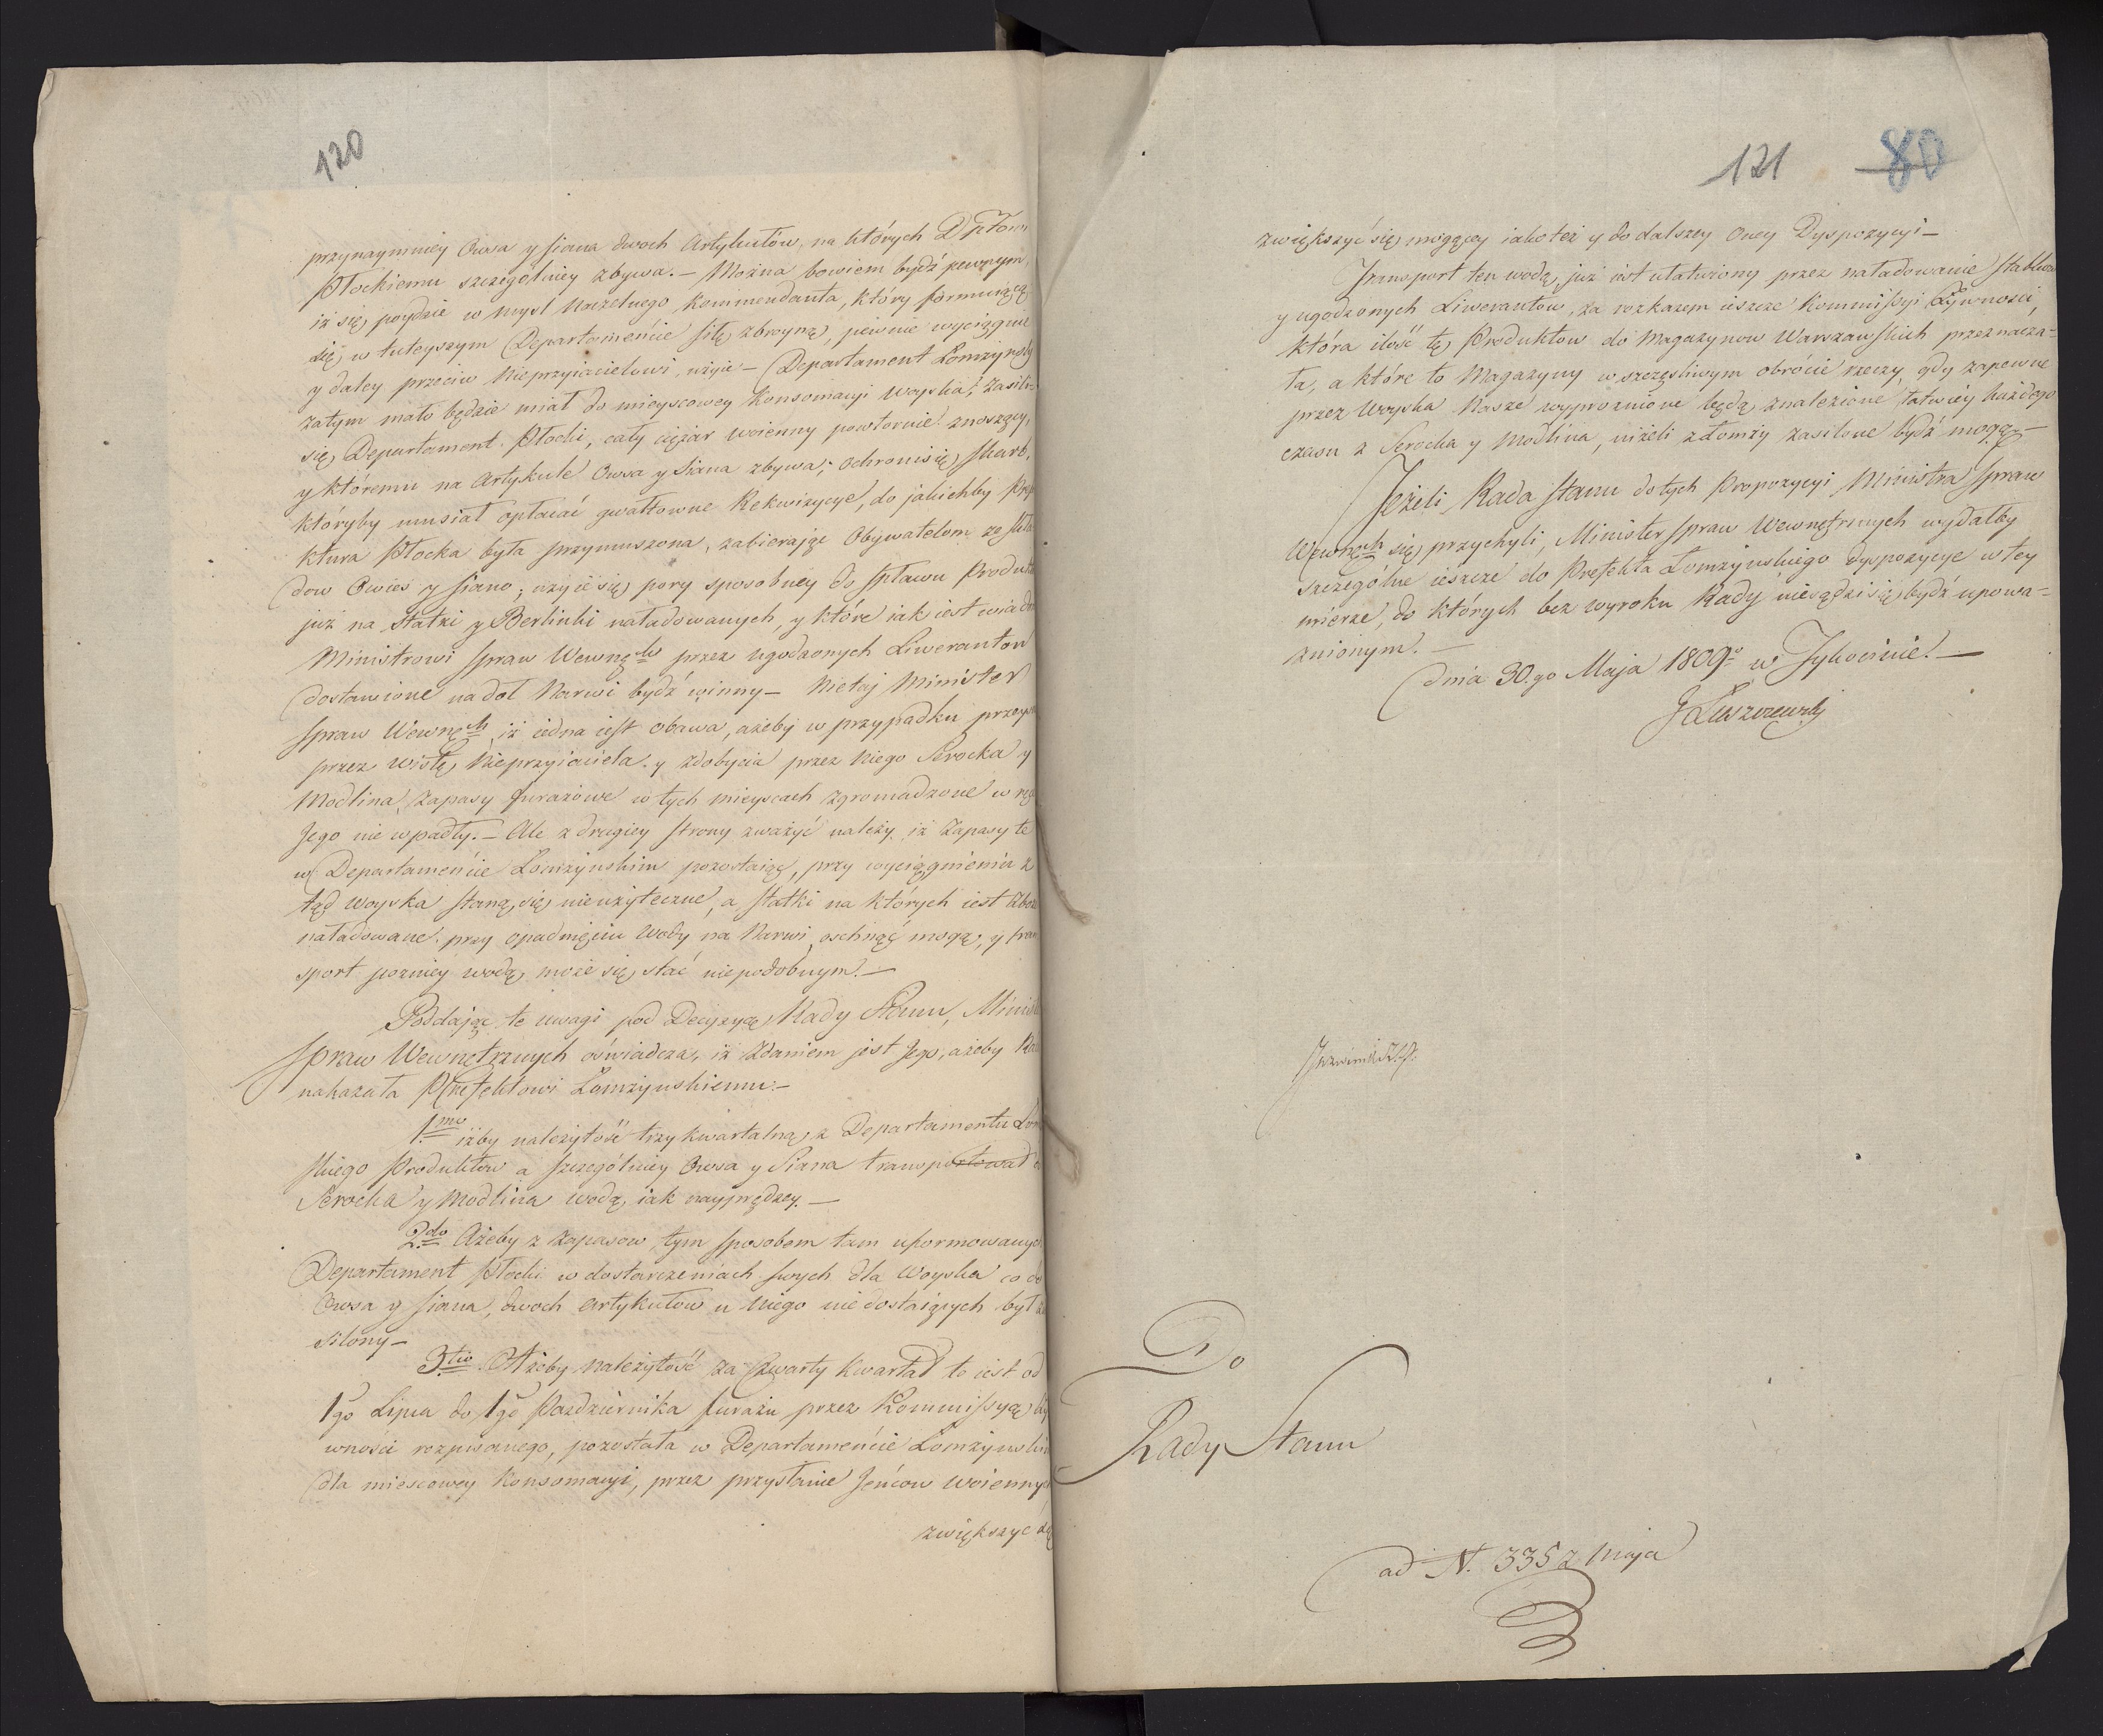 120
przynaymniey Owsa y Siana dwoch Artykułow, na których
Płockiemu szczegolniey zbywa. — Można bowiem bydź pewnym,
iż się poydzie w mysl Naczelnego Kommendanta, który formuiącą
się w tuteyszym Departamencie siłę zbroyną, pewnie wyciągnie
y daley przeciw Nieprzyiacielowi użyie — Departament Łomżynski
zatym mało będzie miał do mieyscowey Konsomacyi Woyska; zasili
się Departament Płocki, cały ciężar woienny powtornie znoszący,
y któremu na Artykule Owsa y Siana zbywa; ochroni się Skarb,
któryby musiał opłacać gwałtowne Rekwizycye, do jakichby Pref
ktura Płocka była przymuszona, zabierając Obywatelom ze
dow Owies y Siano; użyie się pory sposobney do spławu Produkt
już na Statki y Berlinki naładowanych, y które iak iest wiado
Ministrowi Spraw Wewnę przez ugodzonych Liwerantow
dostawione na doł Narwi bydź winny — Nietaj Minister
Spraw Wewnęch iż iedna iest obawa, ażeby w przypadku
przez Wisłę Nieprzyiaciela y zdobycia przez Niego Serocka y
Modlina, zapasy furażowe w tych mieyscach zgromadzone w rę
Jego nie wpadły. — Ale z drugiey strony zważyć należy iż Zapasy te
w Departamencie Łomżynskim pozostaiąc, przy wyciągnieniu z
tąd Woyska staną się nieużyteczne, a statki na których iest
naładowane przy opadnięciu Wody na Narwi oschnąć mogą, y tran
sport pozniey wodą może się stać niepodobnym. —
Poddając te uwagi pod Decyzyą Rady Stanu, Minist
Spraw Wewnętrznych oświadcza, iż Zdaniem jest Jego, ażeby Rad
nakazała Prefektowi Łomżynskiemu. —
1mo iżby należytość trzykwartalną z Departamentu Łom
skiego Produktow a szczególniey Owsa y Siana transportował
Serocka y Modlina wodą iak nayprędzey. —
2do Ażeby z zapasow tym sposobem tam uformowanych
Departament Płocki w dostarczeniach swych dla Woyska co do
Owsa y Siana, dwoch artykułow u Niego niedostaiących był za
silony —
3tio Ażeby należytość za Czwarty Kwartał to iest od
1go Lipca do 1go Pazdziernika furażu przez Kommissyą Ży
wności rozpisanego, pozostała w Departamencie Łomżynskim
dla miescowey Konsomacyi, przez przysłanie Jeńcow woiennych
zwiększyć się
121 80
zwiększyć się mogącey iako też y do dalszey Oney Dyspozycyi —
Transport ten wodą już iest ułatwiony przez naładowanie Statkow
y ugodzonych Liwerantow, za rozkazem ieszcze Kommissyi Żywności,
która ilość tę Produktow do Magazynow Warszawskich przeznacza=
ła, a które to Magazyny w szczęsliwym obrócie rzeczy, gdy zapewne
przez Woyska Nasze wyproznione będą znalezione łatwiey każdego
czasu z Serocka y Modlina, niżeli z Łomży zasilone bydź mogą. —
Jeżeli Rada Stanu do tych Propozycyi Ministra Spraw
Wewnęch się przychyli, Minister Spraw Wewnętrznych wydałby
szczególne ieszcze do Prefekta Łomżynskiego dyspozycye w tey
mierze, do których bez wyroku Rady nie sądzi się bydź upowa=
żnionym. —
dnia 30.go Maja 1809 w Tykocinie. —
J Łuszczewski
Do
Rady Stanu
ad N. 335 z Maja